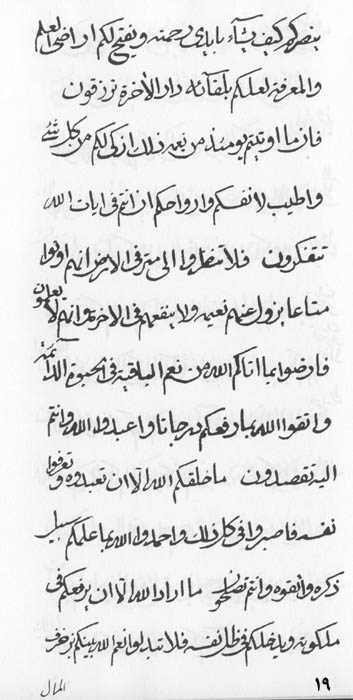 ينصركم كيف يشآء بايادى رحمته ويفتح لكم اراضى العلم
والمعرفة لعلكم بلقآئه دار الأخرة ترزقون
فان ما اوتيتم يومئذ من نعمه ذلك ازكى لكم من كل شئ
واطيب لانفسكم وارواحكم ان انتم فى ايات الله
تتفكرون فلا تنظروا الى مترفى الارض انهم اوتوا
متاعا يزول عنهم نعيمه ولا ينفعهم فى الاخرة وانهم لا يعلمون
فارضوا بما اتاكم الله من نعم الباقية فى الحيوة الدآئمة
واتقوا الله بما رفعكم درجاتا واعبدوا الله وانتم
اليه تقصدون ما خلقكم الله الا ان تعبدوه وتعرفوا
نفسه فاصبروا فى كل ذلك واحمدوا الله بما علمكم سبيل
ذكره واتقوه وانتم تصلحون ما اراد الله الا ان يرفعكم فى
ملكوته ويدخلكم فى ظل نفسه فلا تبدلوا نعم الله بينكم بزخرف
المال
١٩